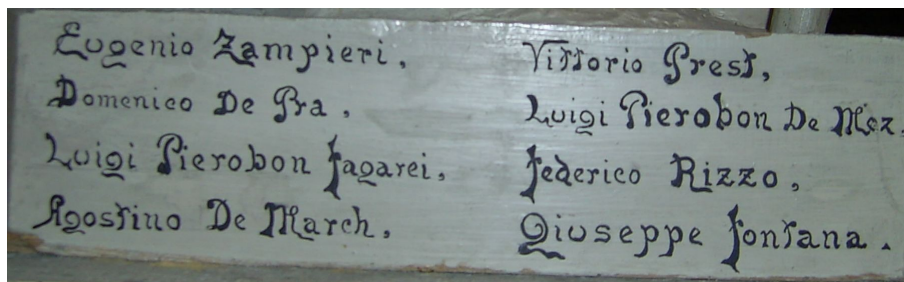 Eugenio Zampieri,
Domenico De Pra,
Luigi Pierobon Fagarei,
Agostino De March,
Vittorio Prest,
Luigi Pierobon De Mez,
Federico Rizzo,
Giuseppe Fontana.